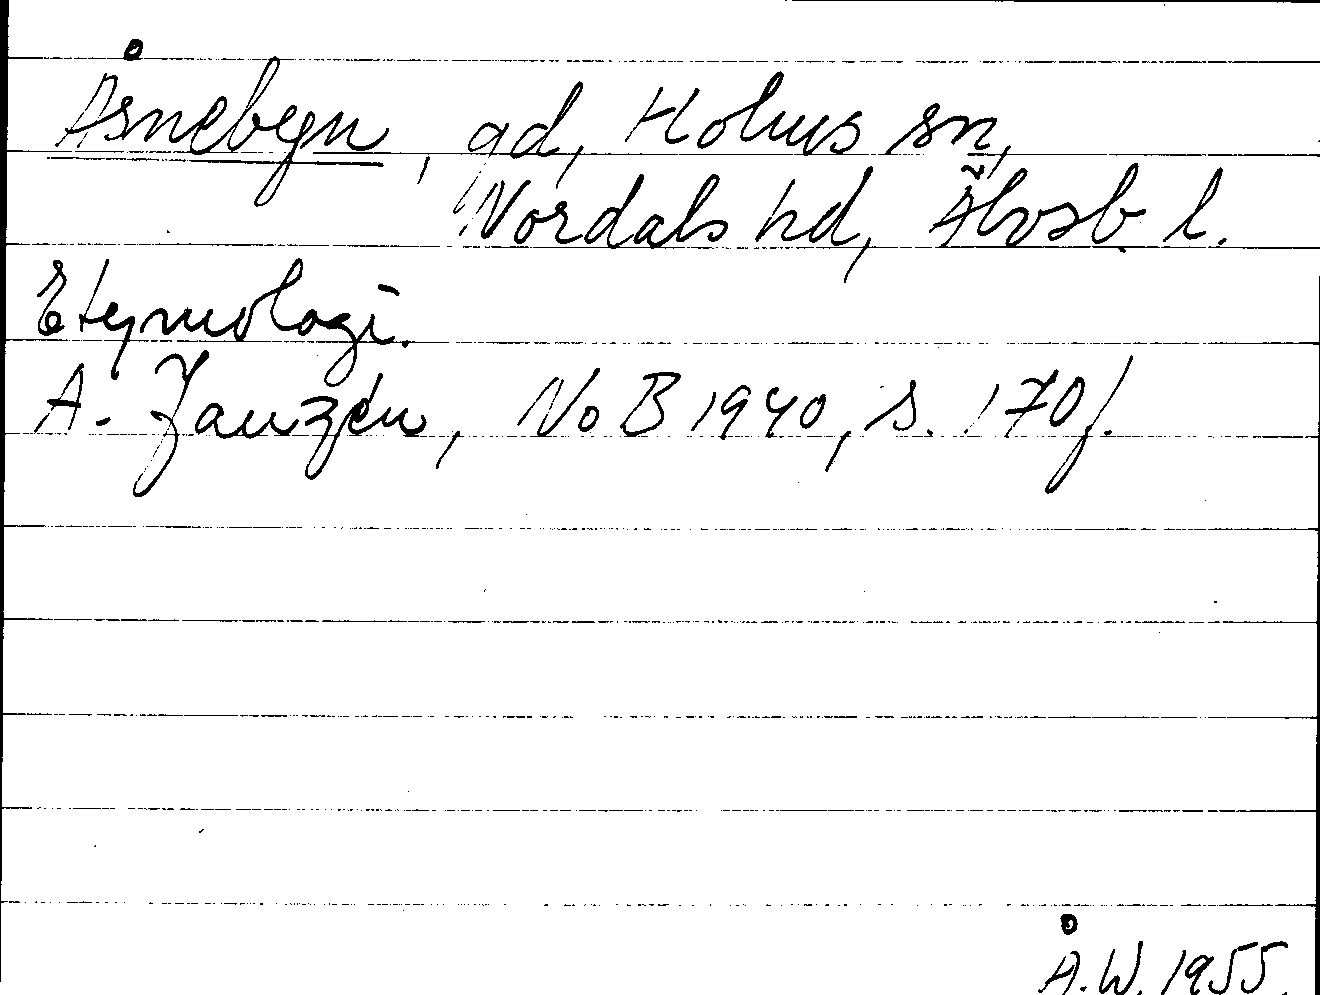 Åsnebyn, gd, Holms sn,
Nordals hd, Älvsb. l.
Etymologi.
A. Janzén, NoB 1940, s. 170f.
Å.W. 1955.